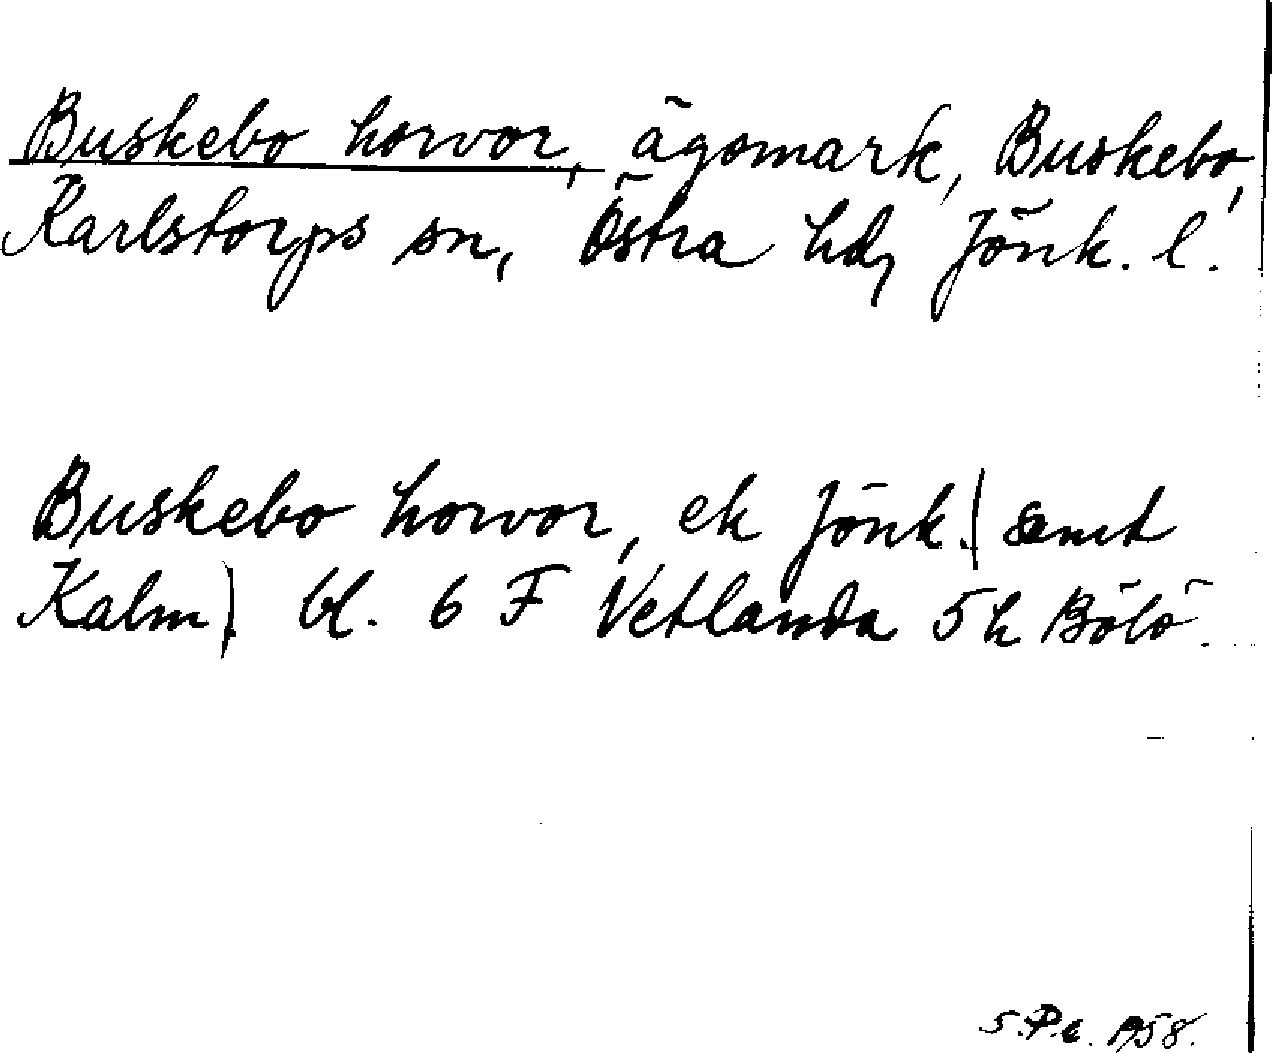 Buskebo horvor, ägomark, Buskebo,
Karlstorps sn, Östra hd, Jönk. l.
Buskebo horvor, ek Jönk. (samt
Kalm) bl. 6 F Vetlanda 5h Bölö.
S.P.e. 1958.